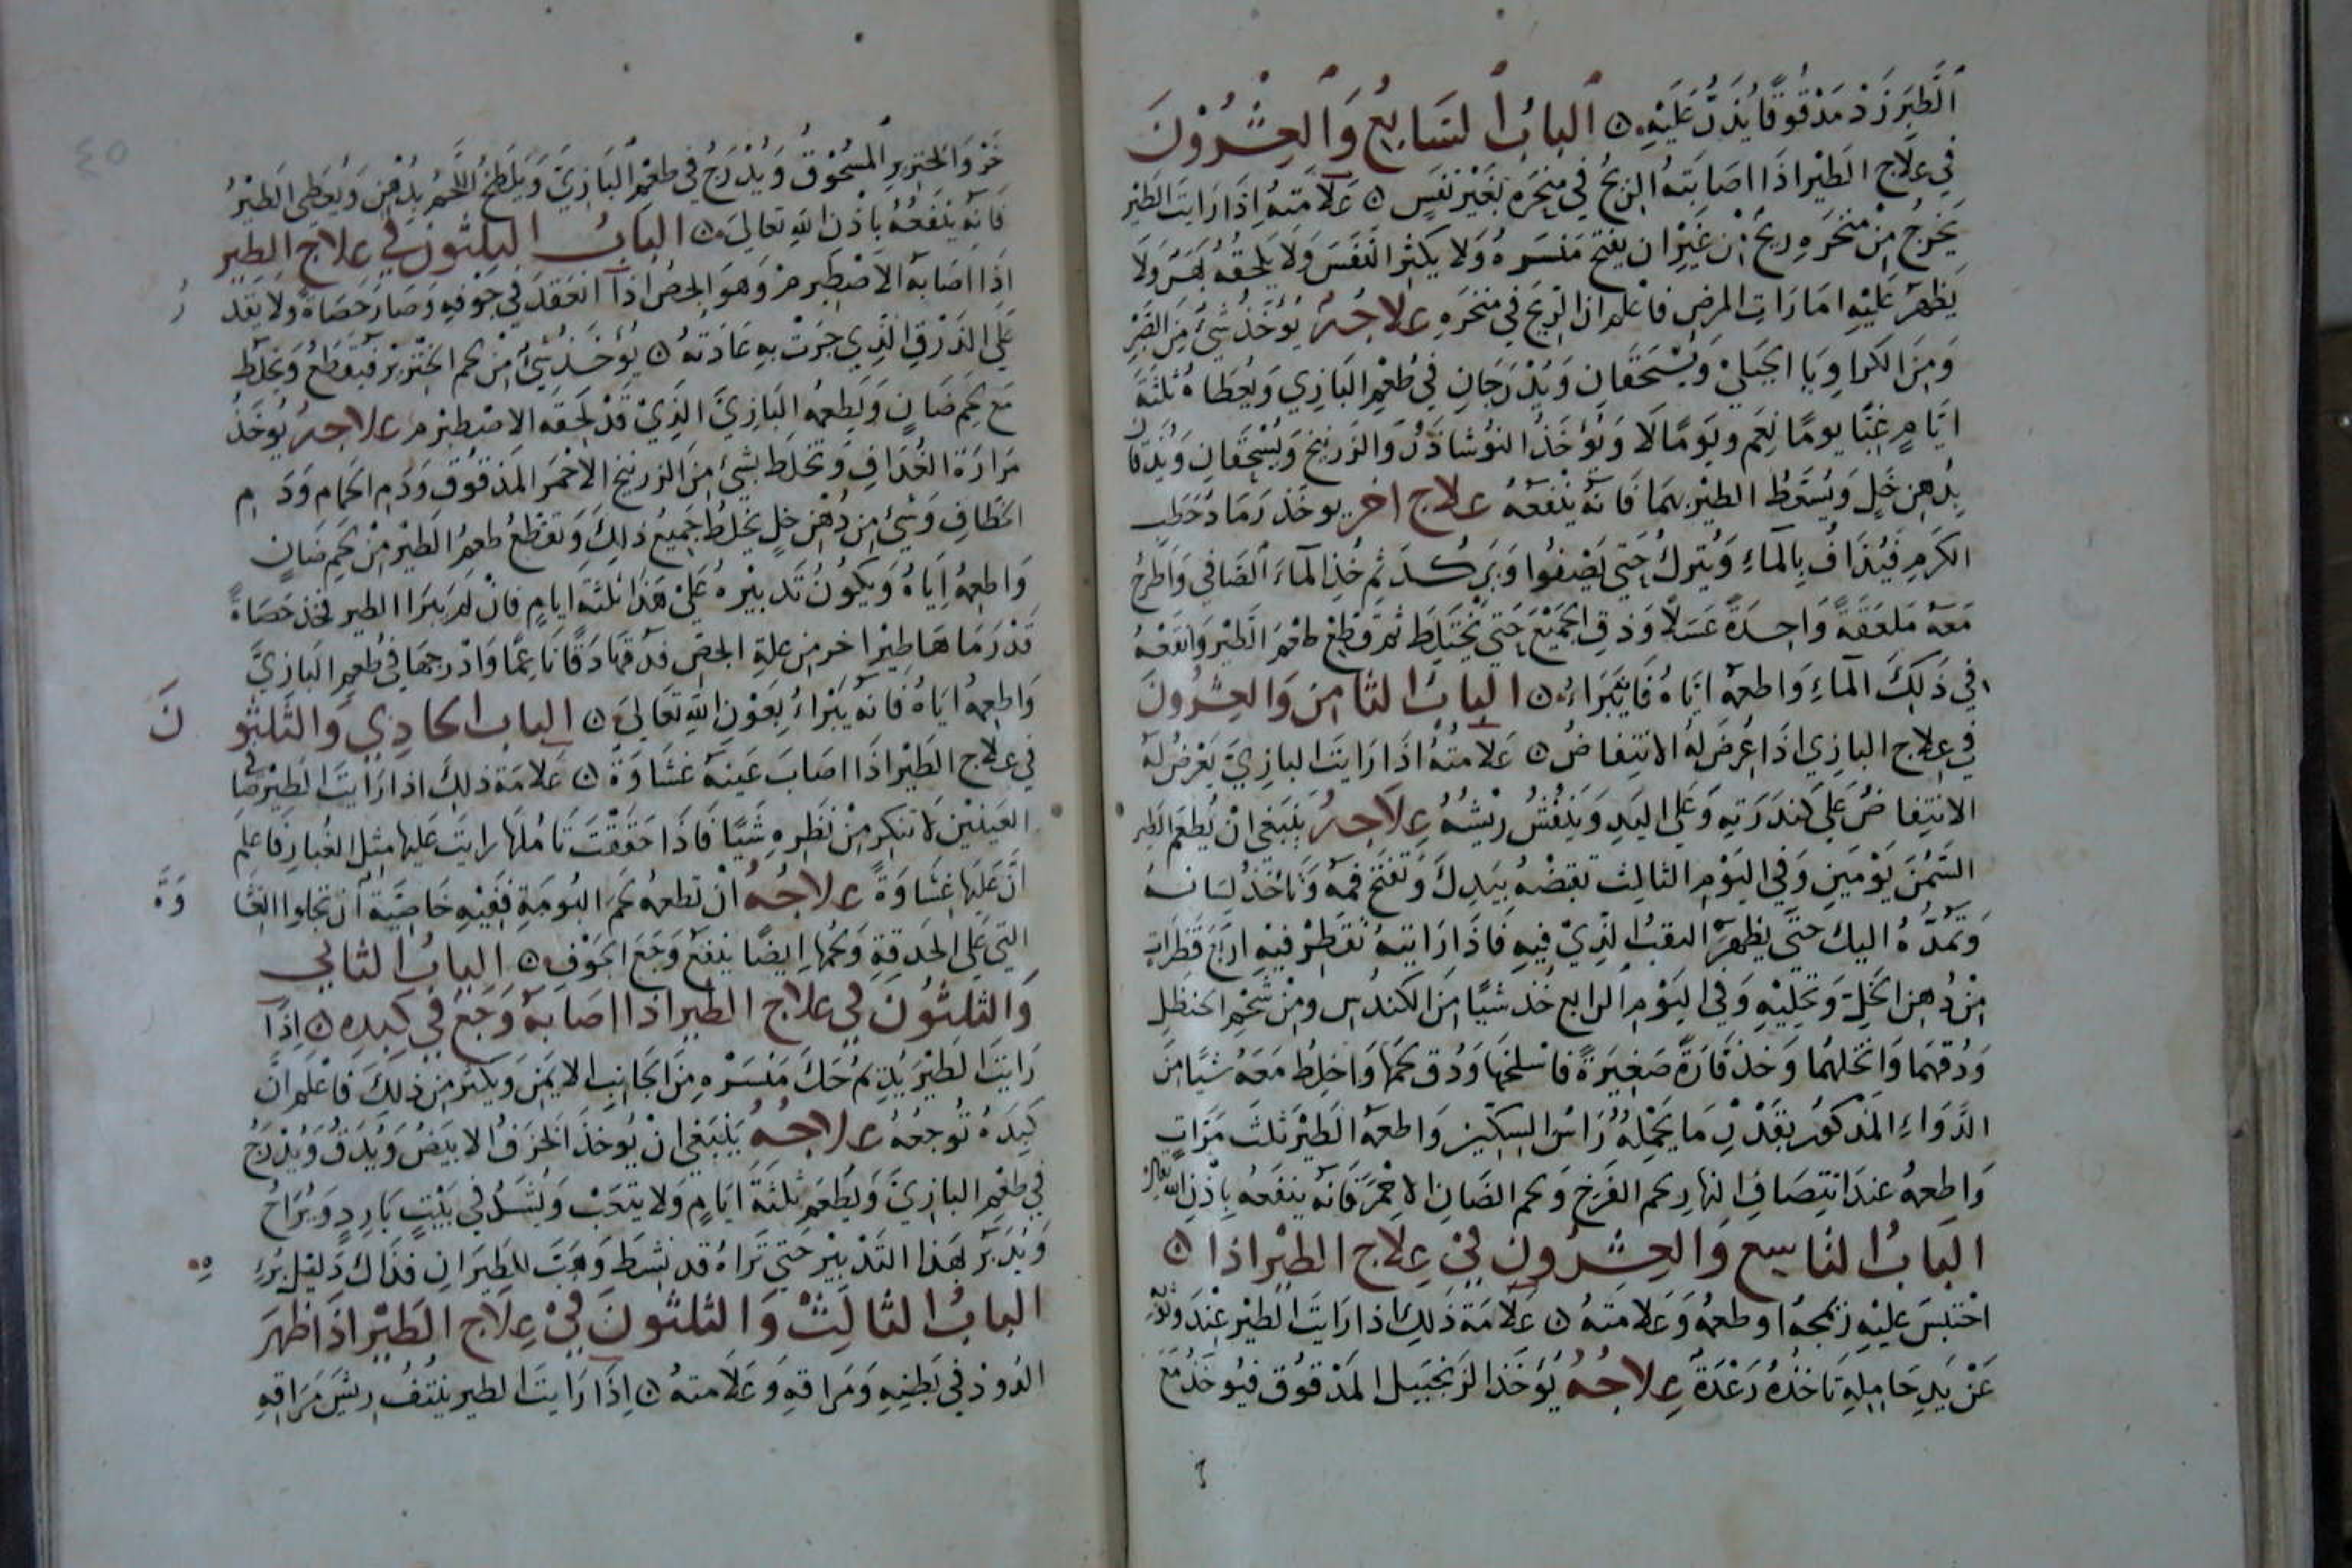 الطَّبَرْزَدْ مَدْقُوقًا يُذَرُّ عَلَيْهِ ۞ اَلبابُ السَّابِعُ وَالعِشْرُوْنَ
فِي عِلَاجِ الطَّيْرِ اذَا اصَابَتهُ الريحُ فِي مِنْخَرِه بغَيْرِ نَفَسٍ ۞ عَلَامَتهُ اِذَا رَايتَ الطَيْر
يَخرجُ مِنْ مَنْخَرهِ ريحٌ مِن غَيْرِ ان يَفتح مَنسَرهُ وَلا يكثر النَفَسَ وَلَا يَلحقهُ بَهَرٌ وَلَا
يَظهرُ عَليْهِ امَارَات المرض فاعْلم ان الريحَ فِي مَنخَرِهِ عِلَاجُهُ يُؤْخَذُ شَيْءٌ مِنَ الصَّبْرِ
وَمِنَ الكرَاوِيَا الجَبَليْ وَيُسْحَقَانِ وَيُدْرَجَانِ فِي طُعْمِ البَازِي وَيُعْطَاهُ ثلثَةَ
ايَّامٍ غِبًّا يومًا نعَم ويَومًا لَا وَيُؤخَذُ النُّوشَاذَرُ وَالزَرنيخ وَيُسْحَقَانِ وَيُدَقَّان
بِدُهنِ خَلٍ وَيُسَعَّطُ الطيْر بهمَا فَانهُ يَنْفَعهُ عِلَاج اخر يوخَذ رَمَادُ حَطَبِ
الكَرمِ فَيُذَافُ بِالمَاءِ وَيُترَكُ حَتى يَصْفُوا وَيَركدَ ثم خُذِ المآءَ الصَافِي وَاطْرَحْ
مَعَهُ مَلعَقَةً وَاحِدَةً عَسَلًا وَذف الجَمِيْعَ حَتى يَختَلِط ثم قطِعْ طعْمَ الطَيْرِ وَانقعْهُ
فِي ذَلِكَ المآءِ وَاطعمهُ ايَّاهُ فَانهُ يَبْرَاءُ ۞ اَلبابُ الثامِنَ وَالعِشْرُونَ
فِي عِلَاج البازِي اذَا عَرَضَ لهُ الانتِفاضُ ۞ عَلَامتهُ اذَا رَايتَ البازِيَ يَعْرِضُ لهُ
الانتِفاضُ عَلَى كَندَرَتِهِ وَعَلى اليَدِ وَيَنفُشُ رِيْشَهُ عِلَاجُهُ يَنبَغِي انْ يُطعَم الطير
السَّمْنَ يَوْمَينِ وَفِي اليَوْمِ الثالِث تقبضْهُ بيَدِكَ وَتفتَح فَمَهُ وَتَاخُذُ لِسَانهُ
وَتمدَّهُ اليكَ حَتَّى يَظهرَ النقبُ الذِيْ فِيهِ فَاذَا رَايتَهُ تُقَطِرْ فِيْهِ ارْبَعَ قَطَرَاتٍ
مِنْ دُهنِ الخَلِ وَتخلِيْهِ وَفِي اليَوْمِ الرابِعِ خُذ شيْئًا مِنَ الكندُسِ وَمِنْ شحْمِ الحَنظَلِ
وَدُقهُمَا وَانخلهُمَا وَخذ فَارَةً صَغِيرَةً فاسْلخهَا وَدُق لحمَهَا وَاخلِطْ مَعَهُ شيْئًا مِنَ
الدَّوَاءِ المَذكُورِ بقَدْرِ مَا يَحْمِلهُ رَاسُ السِكِّيْنِ وَاطعمهُ الطَيْرَ ثَلَثَ مَرَاتٍ
وَاطعِمهُ عِندَ انتِصَافِ النهارِ لحم الفَرخ وَلحم الضَانِ الاحْمَرَ فَانهُ يَنفَعهُ بِاذْنِ اللهِ تعالى
البَابُ التَاسِعُ وَالعِشْرُونَ فِيْ عِلَاجِ الطَيْرِ اذَا ۞
احْتبَسَ عَلَيْهِ زَمجهُ او طعمهُ وَعَلامتهُ ۞ عَلَامَة ذَلِكَ اذا رَايتَ الطَيْر عِنْدَ
عَنْ يَدِ حَامِلِهِ تَاخذهُ رَعْدَةٌ عِلَاجُهُ يُؤخَذ الزَنجَبيل المَدْقُوق فيُوخَذ مَعَ
خَرْوِ الخنزيرِ المَسْحُوْقُ وَيُدْرَجُ فِي طعْمِ البَازِيّ وَيلطخُ اللحْمُ بِدُهْنٍ وَيُعطى الطَيْرُ
فَانهُ يَنْفَعُهُ بِاذْنِ اللهِ تعالى ۞ البَابُ الثلثون فِي عِلَاج الطير
اِذَا اصَابهُ الاصْطِيرم وَهوَ الجصُ اذَا انعَقدَ فِي جَوْفِهِ وَصَارَ حَصَاةً وَلا يَقْدِرُ
عَلَى الذَرْقِ الَذِي جَرَتْ بهِ عَادَتهُ ۞ يُؤخَذ شيءٌ مِنْ لحم الخِنزِير فيُقَطعُ وَيخلَط
مَع لحْمِ ضَانٍ وَيُطعمهُ البَازِيَّ الذِيْ قَدْ لَحِقَهُ الاصْطِيرم عِلَاجُهُ يُوخَذ
مَرَارَة الغُدَافِ وَتخلَط بشيْءٍ مِنَ الزرنيخِ الاحْمَرِ المَدقُوقِ وَدَمِ الحَمَامِ وَدَمِ
الخطافِ وَشَيْءٍ مِن دُهْنِ خلٍ يُخلط جَمِيْعُ ذلِكَ وَتقطعُ طعمُ الطَيْرِ مِنْ لحَمِ ضَانٍ
وَاطعِمهُ اِيَاهُ وَيَكُونُ تَدبِيْرهُ عَلى هَذَا ثلثة ايامٍ فانْ لمْ يَبرَا الطير فخذ حَصَاةً
قدْ رَمَاهَا طيرٌ اخر مِن عِلةِ الجصِ فدقهَا دَقًّا نَاعِمًا وَادْرِجهَا فِي طعمِ البَازِيِّ
وَاطعِمهُ ايَاهُ فَانهُ يَبْرَاءُ بعَوْنِ اللهِ تعَالى ۞ البابُ الحادِي وَالثَّلثُونَ
فِي عِلَاج الطَيْرِ اذَا اصَابَ عَينَهُ غشَاوَةٌ ۞ عَلَامَة ذلِكَ اذا رَايتَ الطيْرَ صَافِي
العَيْنَيْنِ لا تنكر مِنْ نَظَرِهِ شَيْئًا فَاذَا حَقَقْتَ تَامُلهَا رايتَ عَليها مِثل الغُبارِ فَاعلم
انَّ عَلَيْهَا غِشَاوَةً عِلَاجُهُ انْ تطعمهُ لحمَ البُومَةِ فَفيهِ خَاصِّيَّة ان تجلوا الغشَاوَةَ
التِي عَلَى الحَدقةِ وَلحمُهَا ايضًا ينفع وَجَعَ الجَوْفِ ۞ البابُ الثانِي
وَالثلثُوْنَ فِي عِلَاج الطير اذا اصَابهُ وَجَعٌ فِي كَبِدِه ۞ اِذَا
رَايتَ الطَيْرَ يُدِيْمُ حَكَّ مَنْسَرهِ مِنَ الجَانبِ الايمَنِ وَيكثر مِن ذلِكَ فَاعْلَم انَّ
كَبِدَهُ تُوجعهُ عِلَاجُهُ يَنبَغِي انْ يُوخذَ الخَزَفُ الابيَضُ وَيُدَقُ وَيُدْرَجُ
فِي طعْمِ البازِيِّ وَيُطعَم ثَلَثَةَ ايَامٍ وَلا يتعَبْ وَيُشَدُّ فِي بَيْتٍ بَارِدٍ وَيُرَاحُ
وَيُدَبَرُ بهَذَا التَدبِيْرِ حَتى تَرَاهُ قد نشِطَ وَهَبَّ للطيرَانِ فذاك دَلِيْل بُرْئِهِ
البابُ الثالِثُ وَالثلثونَ فِيْ عِلَاجِ الطَيْرِ اذَا ظهَرَ
الدُودُ فِي بَطنِهِ وَمَرَاقهِ وَعَلَامتهُ ۞ اِذَا رَايتَ الطير ينتفُ ريشَ مَرَاقِهِ